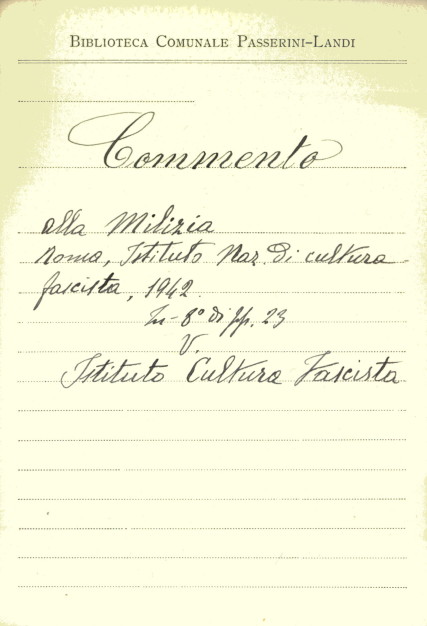 BIBLIOTECA COMUNALE PASSERINI-LANDI
Commento
alla Milizia
Roma, Istituto Naz. di cultura
fascista, 1942.
In-8° di pp. 23
V.
Istituto Cultura Fascista